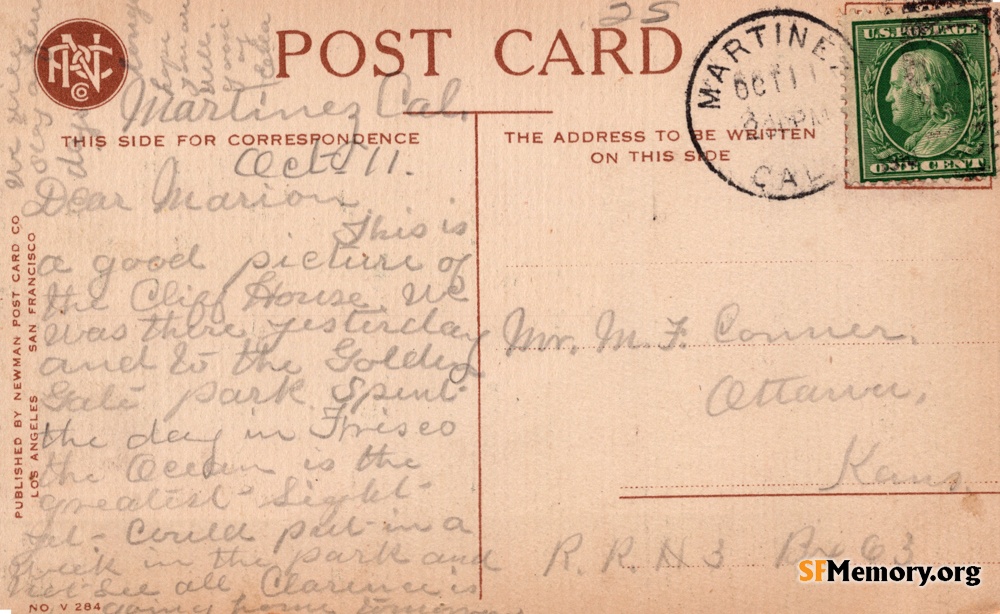 25
POST CARD
MARTINEZ
OCT 11
PM
CAL
U.S. POSTAGE
ONE CENT
Martinez Cal.
THIS SIDE FOR CORRESPONDENCE
THE ADDRESS TO BE WRITTEN
ON THIS SIDE
Oct 11.
Dear Marion
This is
a good picture of
the Cliff House. We
was there yesterday
and to the Golden
Gate park Spent
the day in Frisco
the Ocean is the
greatest Sight
yet Could put in a
week in the park and
not See all Clarence is
going home tomorrow
We will
Mr. M. F. Conner.
Ottawa,
Kans.
R. R. N 3 Box 63
PUBLISHED BY NEWMAN POST CARD CO
LOS ANGELES SAN FRANCISCO
NO. V 284
SFMemory.org